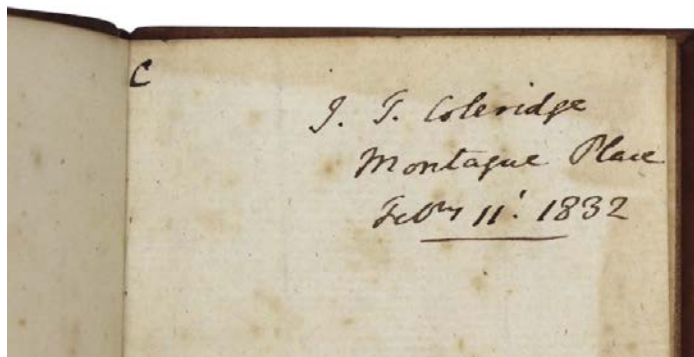 C
J. T. Coleridge
Montague Place
Feb.ry 11.' 1832